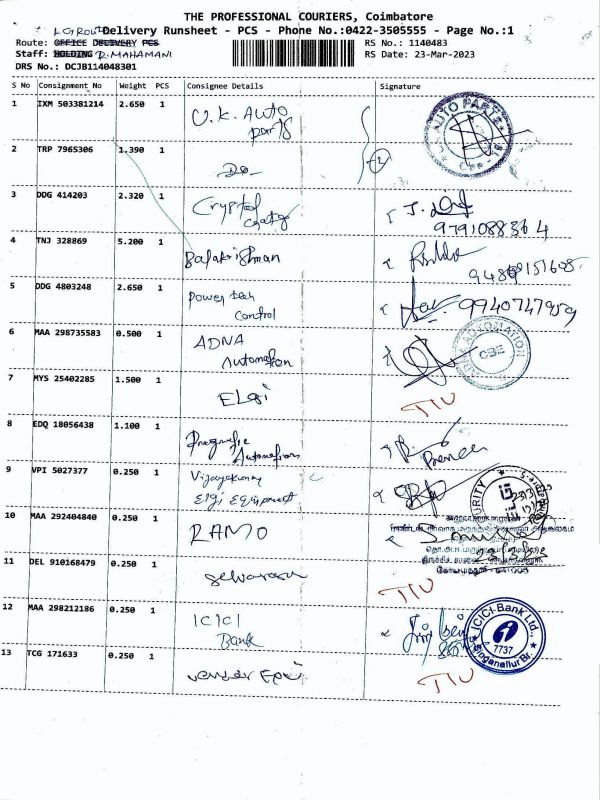 THE PROFESSIONAL COURIERS, Coimbatore
Delivery Runsheet - PCS - Phone No.:0422-3505555 - Page No.:1
Route: OFFICE DELIVERY PCS
RS No.: 1140483
Staff: HOLDING D. MAHAMANI
RS Date: 23-Mar-2023
DRS No.: DCJB114048301
S No Consignment No Weight PCS Consignee Details Signature
1 IXM 503381214 2.650 1 U.K. Auto
parts
AUTO PARTS
2 TRP 7965306 1.390 1 Do-
3 DDG 414203 2.320 1 Crystal
9791088364
4 TNJ 328869 5.200 1 Balakrishnan
5 DDG 4803248 2.650 1 Power tech
control
9940747959
6 MAA 298735583 0.500 1 ADNA
Automation
AUTOMATION
CBE
7 MYS 25402285 1.500 1 ELGi
8 EDQ 18056438 1.100 1 Pragmatic
Automations
9 VPI 5027377 0.250 1 Vijayakumar
Elgi Equipment
10 MAA 292404840 0.250 1
11 DEL 910168479 0.250 1 Selvarasu
12 MAA 298212186 0.250 1 ICICI
Bank
ICICI Bank Ltd.,
7737
Singanallur Br.
13 TCG 171633 0.250 1